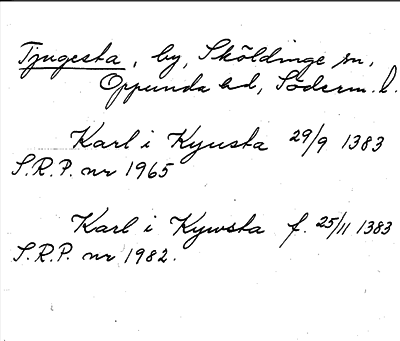 Tjugesta, by, Sköldinge sn,
Oppunda hd, Söderm. l.
Karl i Kyusta 29/9 1383
S.R.P. nr 1965
Karl i Kywsta f. 25/11 1383
S.R.P. nr 1982.